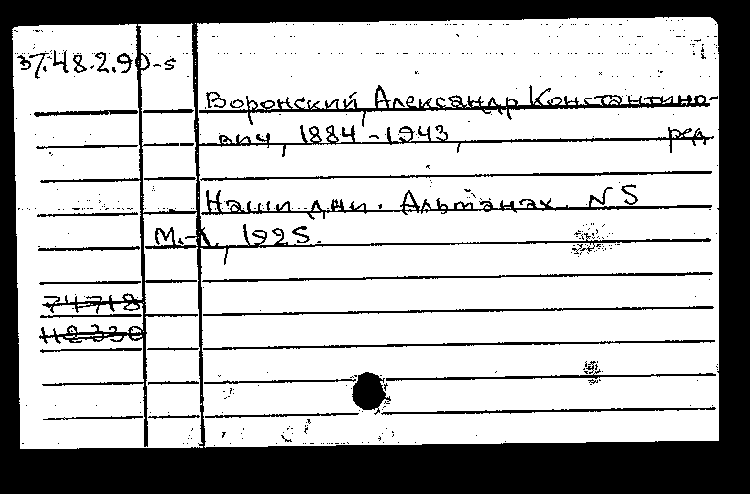 37.48.2.90-5
Воронский, Александр Константино-
вич, 1884-1943, ред
Наши дни. Альманах. N 5
М.-Л., 1925.
74718
112330